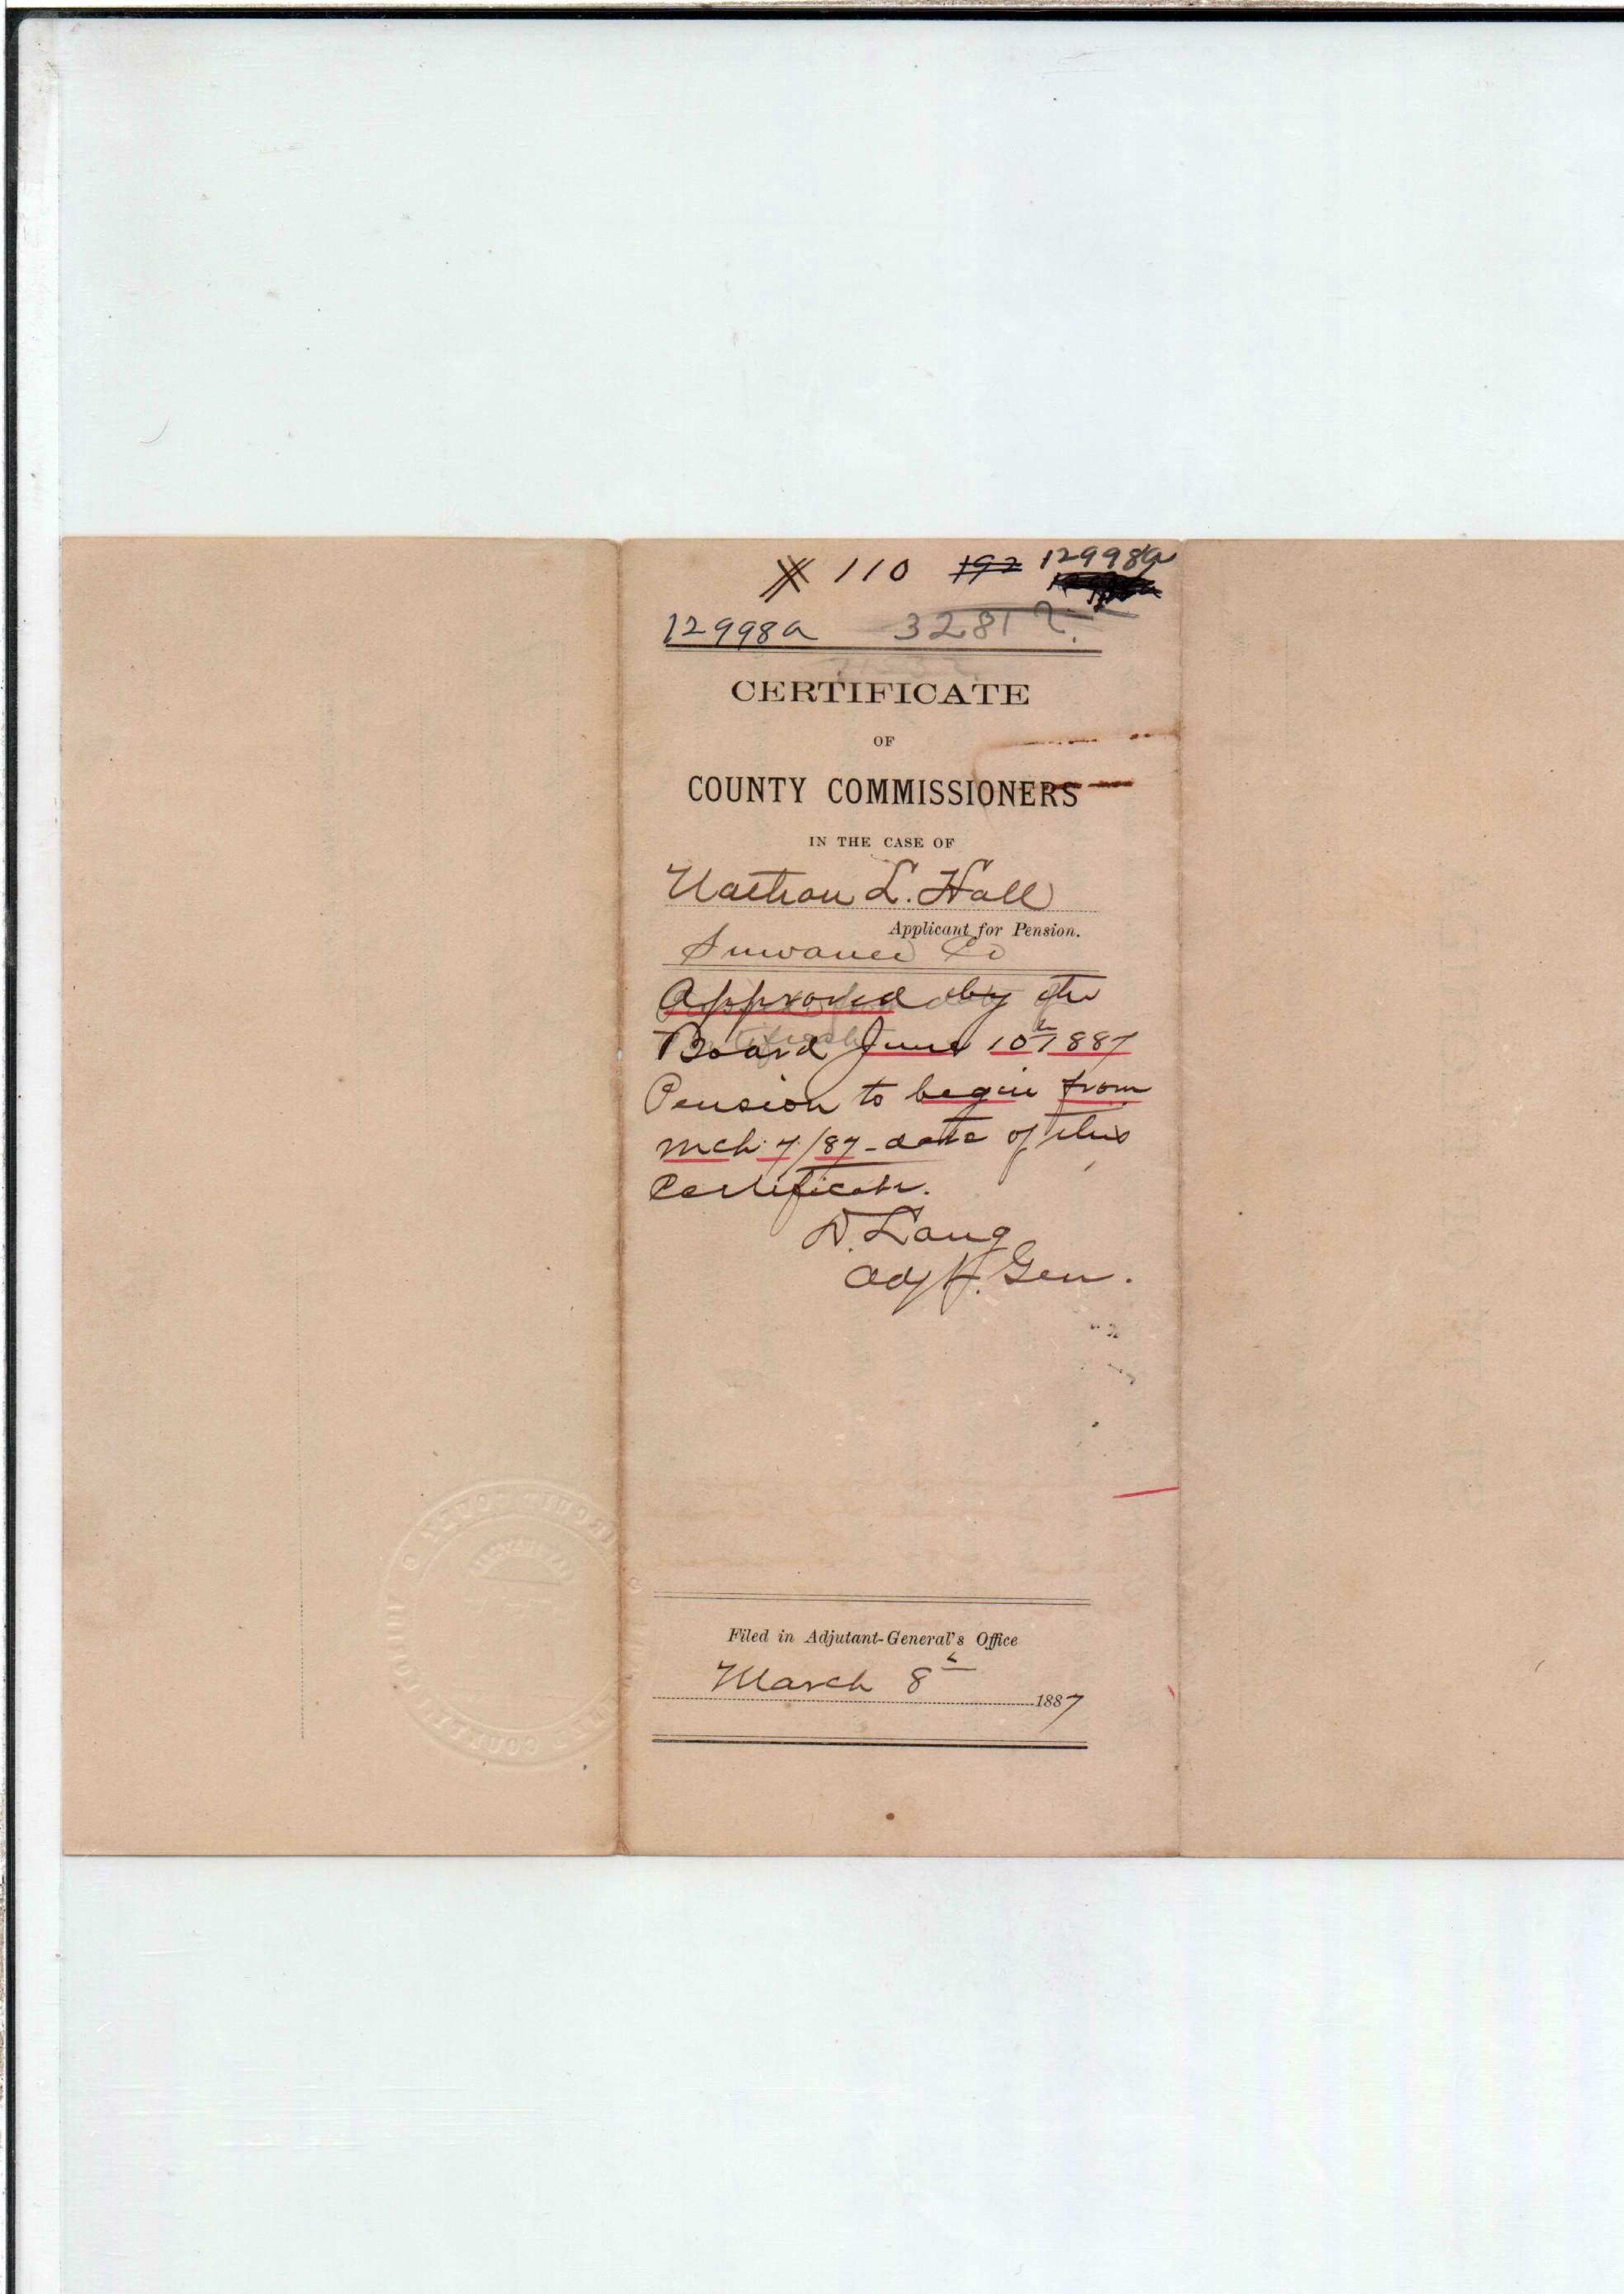 # 110 192 12998a
12998a 3281
CERTIFICATE
OF
COUNTY COMMISSIONERS
IN THE CASE OF
Nathan L. Hall
Applicant for Pension.
Suwanee Co
Approved by the
Board June 10th 1887
Pension to begin from
Mch. 7/87 - date of this
Certificate.
D. Lang
Adjt. Gen.
Filed in Adjutant-General's Office
March 8th
1887